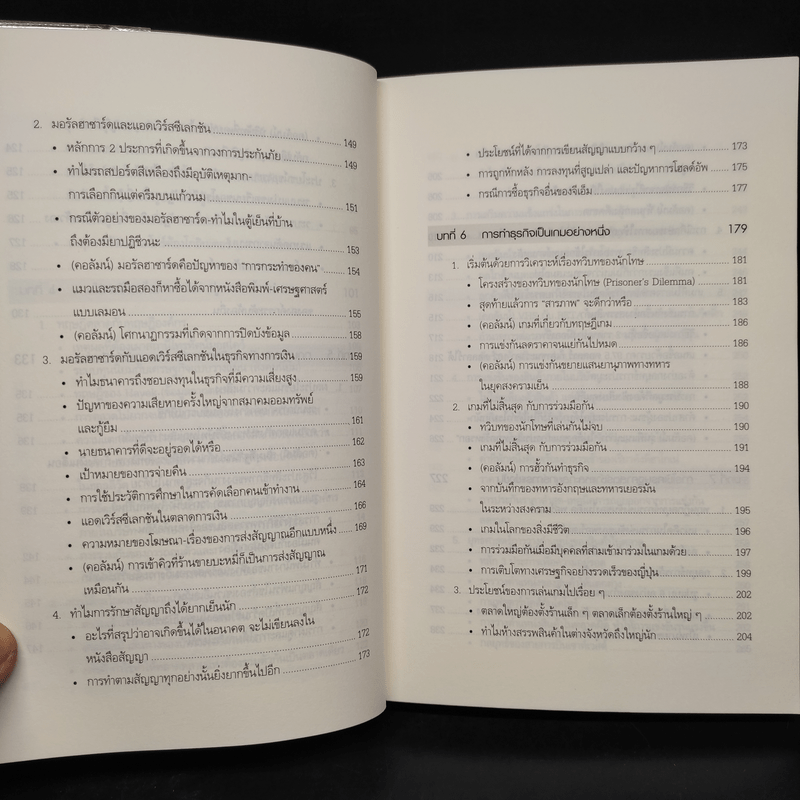 2. มอรัลฮาซาร์ดและแอดเวิร์สซีเลกชัน 149
• หลักการ 2 ประการที่เกิดขึ้นจากวงการประกันภัย 149
• ทำไมรถสปอร์ตสีเหลืองถึงมีอุบัติเหตุมาก-
การเลือกกินแต่ครีมบนแก้วนม 151
• กรณีตัวอย่างของมอรัลฮาซาร์ด-ทำไมในตู้เย็นที่บ้าน
ถึงต้องมียาปฏิชีวนะ 153
• (คอลัมน์) มอรัลฮาซาร์ดคือปัญหาของ "การกระทำของคน" 154
• แมวและรถมือสองก็หาซื้อได้จากหนังสือพิมพ์-เศรษฐศาสตร์
แบบเลมอน 155
• (คอลัมน์) โศกนาฏกรรมที่เกิดจากการปิดบังข้อมูล 158
3. มอรัลฮาซาร์ดกับแอดเวิร์สซีเลกชันในธุรกิจทางการเงิน 159
• ทำไมธนาคารถึงชอบลงทุนในธุรกิจที่มีความเสี่ยงสูง 159
• ปัญหาของความเสียหายครั้งใหญ่จากสมาคมออมทรัพย์
และกู้ยืม 161
• นายธนาคารที่ดีจะอยู่รอดได้หรือ 162
• เป้าหมายของการจ่ายคืน 163
• การใช้ประวัติการศึกษาในการคัดเลือกคนเข้าทำงาน 164
• แอดเวิร์สซีเลกชันในตลาดการเงิน 166
• ความหมายของโฆษณา-เรื่องของการส่งสัญญาณอีกแบบหนึ่ง 169
• (คอลัมน์) การเข้าคิวที่ร้านขายบะหมี่ก็เป็นการส่งสัญญาณ
เหมือนกัน 171
4. ทำไมการรักษาสัญญาถึงได้ยากเย็นนัก 172
• อะไรที่สรุปว่าอาจเกิดขึ้นได้ในอนาคต จะไม่เขียนลงใน
หนังสือสัญญา 172
• การทำตามสัญญาทุกอย่างนั้นยิ่งยากขึ้นไปอีก 173
• ประโยชน์ที่ได้จากการเขียนสัญญาแบบกว้าง ๆ 173
• การถูกหักหลัง การลงทุนที่สูญเปล่า และปัญหาการโฮลด์อัพ 175
• กรณีการซื้อธุรกิจอื่นของจีเอ็ม 177
บทที่ 6 การทำธุรกิจเป็นเกมอย่างหนึ่ง 179
1. เริ่มต้นด้วยการวิเคราะห์เรื่องทวิบทของนักโทษ 181
• โครงสร้างของทวิบทของนักโทษ (Prisoner's Dilemma) 181
• สุดท้ายแล้วการ "สารภาพ" จะดีกว่าหรือ 183
• (คอลัมน์) เกมที่เกี่ยวกับทฤษฎีเกม 186
• การแข่งกันลดราคาจนแย่กันไปหมด 186
• (คอลัมน์) การแข่งกันขยายแสนยานุภาพทางทหาร
ในยุคสงครามเย็น 188
2. เกมที่ไม่สิ้นสุด กับการร่วมมือกัน 190
• ทวิบทของนักโทษที่เล่นกันไม่จบ 190
• เกมที่ไม่สิ้นสุด กับการร่วมมือกัน 191
• (คอลัมน์) การฮั้วกันทำธุรกิจ 194
• จากบันทึกของทหารอังกฤษและทหารเยอรมัน
ในระหว่างสงคราม 195
• เกมในโลกของสิ่งมีชีวิต 196
• การร่วมมือกันเมื่อมีบุคคลที่สามเข้ามาร่วมในเกมด้วย 197
• การเติบโตทางเศรษฐกิจอย่างรวดเร็วของญี่ปุ่น 199
3. ประโยชน์ของการเล่นเกมไปเรื่อย ๆ 202
• ตลาดใหญ่ต้องตั้งร้านเล็ก ๆ ตลาดเล็กต้องตั้งร้านใหญ่ ๆ 202
• ทำไมห้างสรรพสินค้าในต่างจังหวัดถึงใหญ่นัก 204